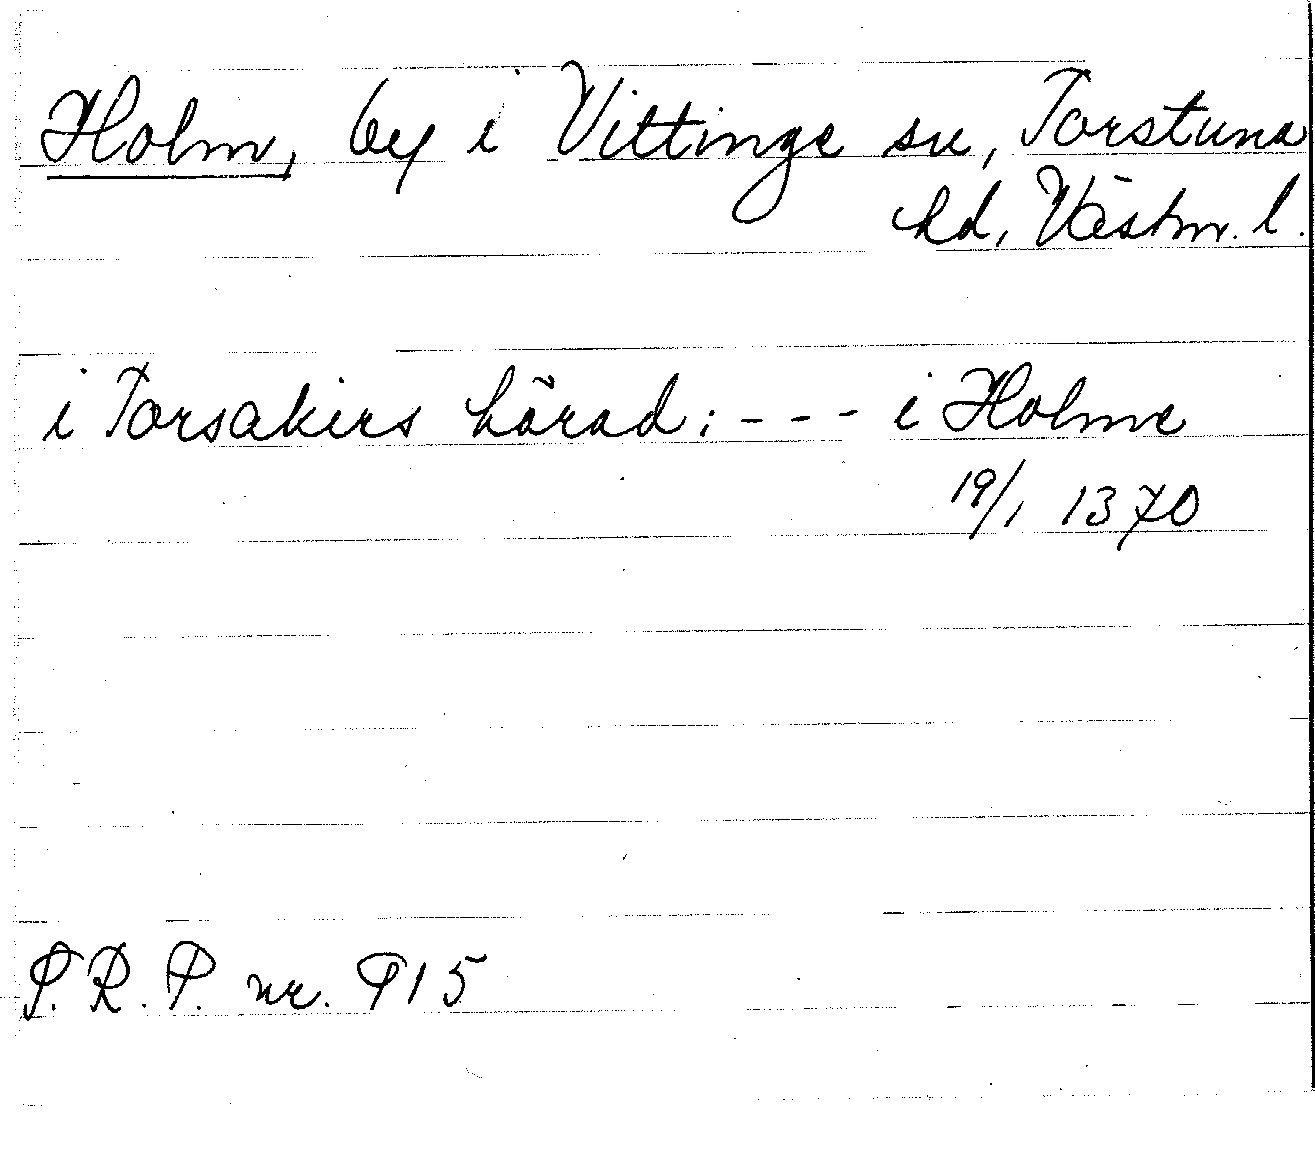 Holm, by i Vittinge sn, Torstuna
hd, Västm. l.
i Torsakers härad: --- i Holme
19/1 1370
P.R.P. nr. 915